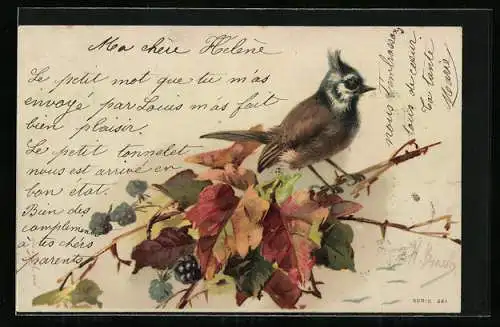 Ma chère Helène
Le petit mot que tu m'as
envoyé par Louis m'as fait
bien plaisir.
Le petit tonnelet
nous est arrivé en
bon état.
Bien des
complements
à tes chers
parents.
nous t'embrassons
tous de cœur
Ta tante
Marie
SERIE 241